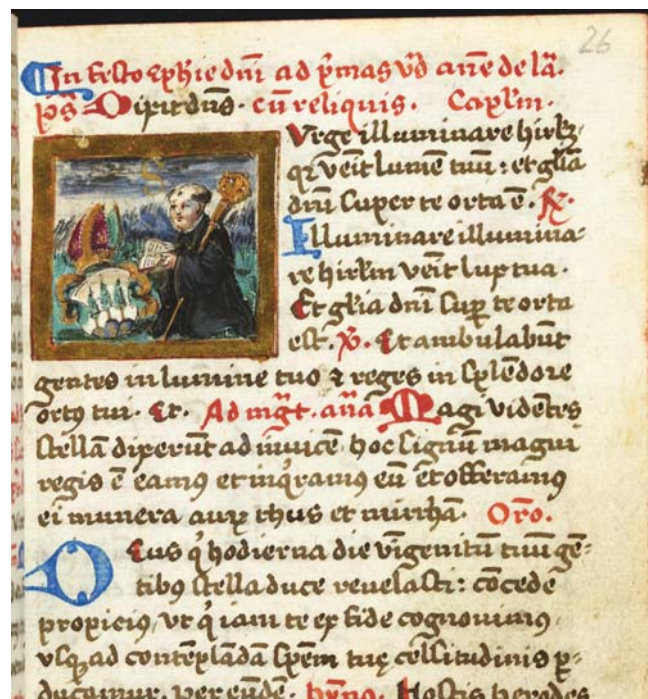 26
In festo ephie dni ad pmas vꝰ añe de la.
ps Dixit dñs. cũ reliquis. Caplm.
Vrge illuminare hirlꝫ,
qꝛ veit lumẽ tuũ: et glia
dni super te orta ẽ. ℟.
Illuminare illumina-
re hirlm veit lux tua.
Et glia dni sup te orta
est. ℣. Et ambulabũt
gentes in lumine tuo ⁊ reges in splẽdore
ortꝰ tui. Et. Ad mgt. aña Magi vidẽtes
stellã dixerũt ad inuicẽ hoc signũ magni
regis ẽ eamꝰ et inqͥramꝰ eũ et offeramꝰ
ei munera auꝝ thus et mirrhã. Oro.
Deus qͥ hodierna die vnigenitũ tuũ gẽ-
tibꝰ stella duce reuelasti: cõcede
propiciꝰ, vt qͥ iam te ex fide cognouimꝰ,
vsqꝫ ad contẽplãdã spẽm tuę celsitudinis ꝑ-
ducamur. per eũdẽ. hỹno. Hostis herodes